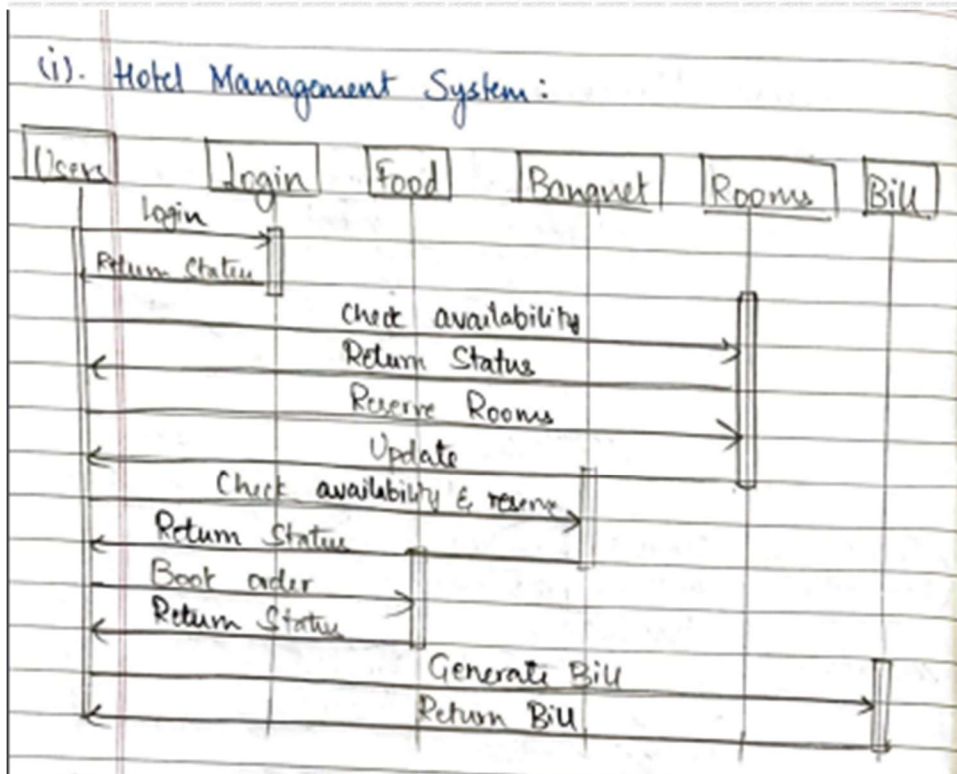 (i). Hotel Management System:
Users Login Food Banquet Rooms Bill
Login
Return Status
Check availability
Return Status
Reserve Rooms
Update
Check availability & reserve
Return Status
Book order
Return Status
Generate Bill
Return Bill